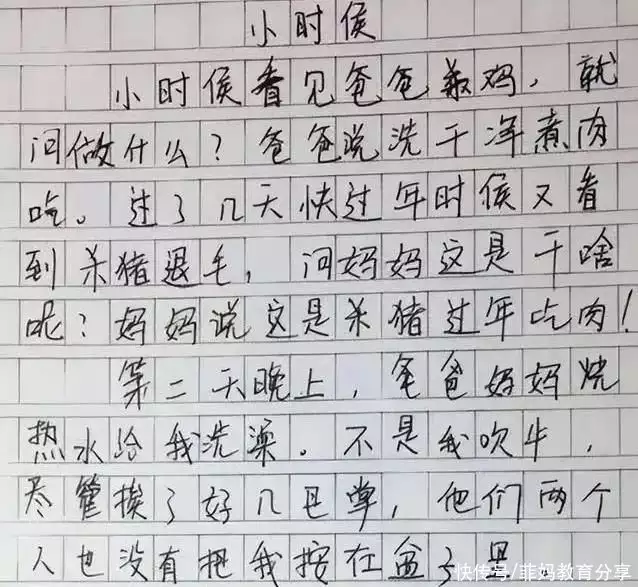 小时侯
小时侯看见爸爸杀鸡，就
问做什么？爸爸说洗干净煮肉
吃。过了几天快过年时侯又看
到杀猪退毛，问妈妈这是干啥
呢？妈妈说这是杀猪过年吃肉！
第二天晚上，爸爸妈妈烧
热水给我洗澡。不是我吹牛，
尽管挨了好几巴掌，他们两个
人也没有把我按在盆子里。
快传号/菲妈教育分享